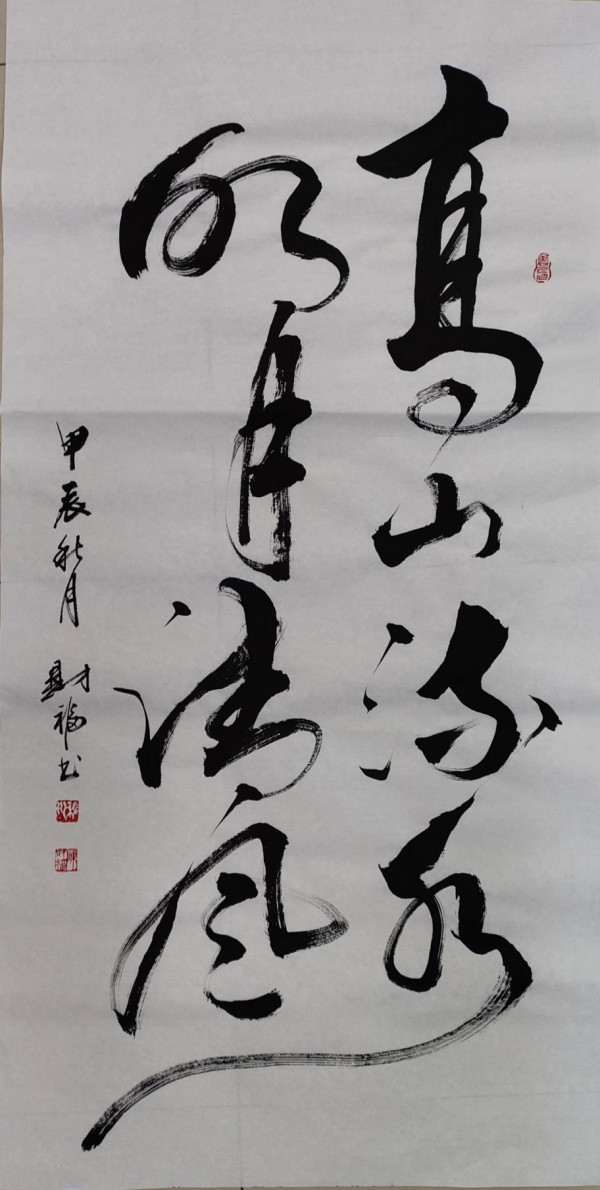 高山流水
明月清风
甲辰秋月 财福书